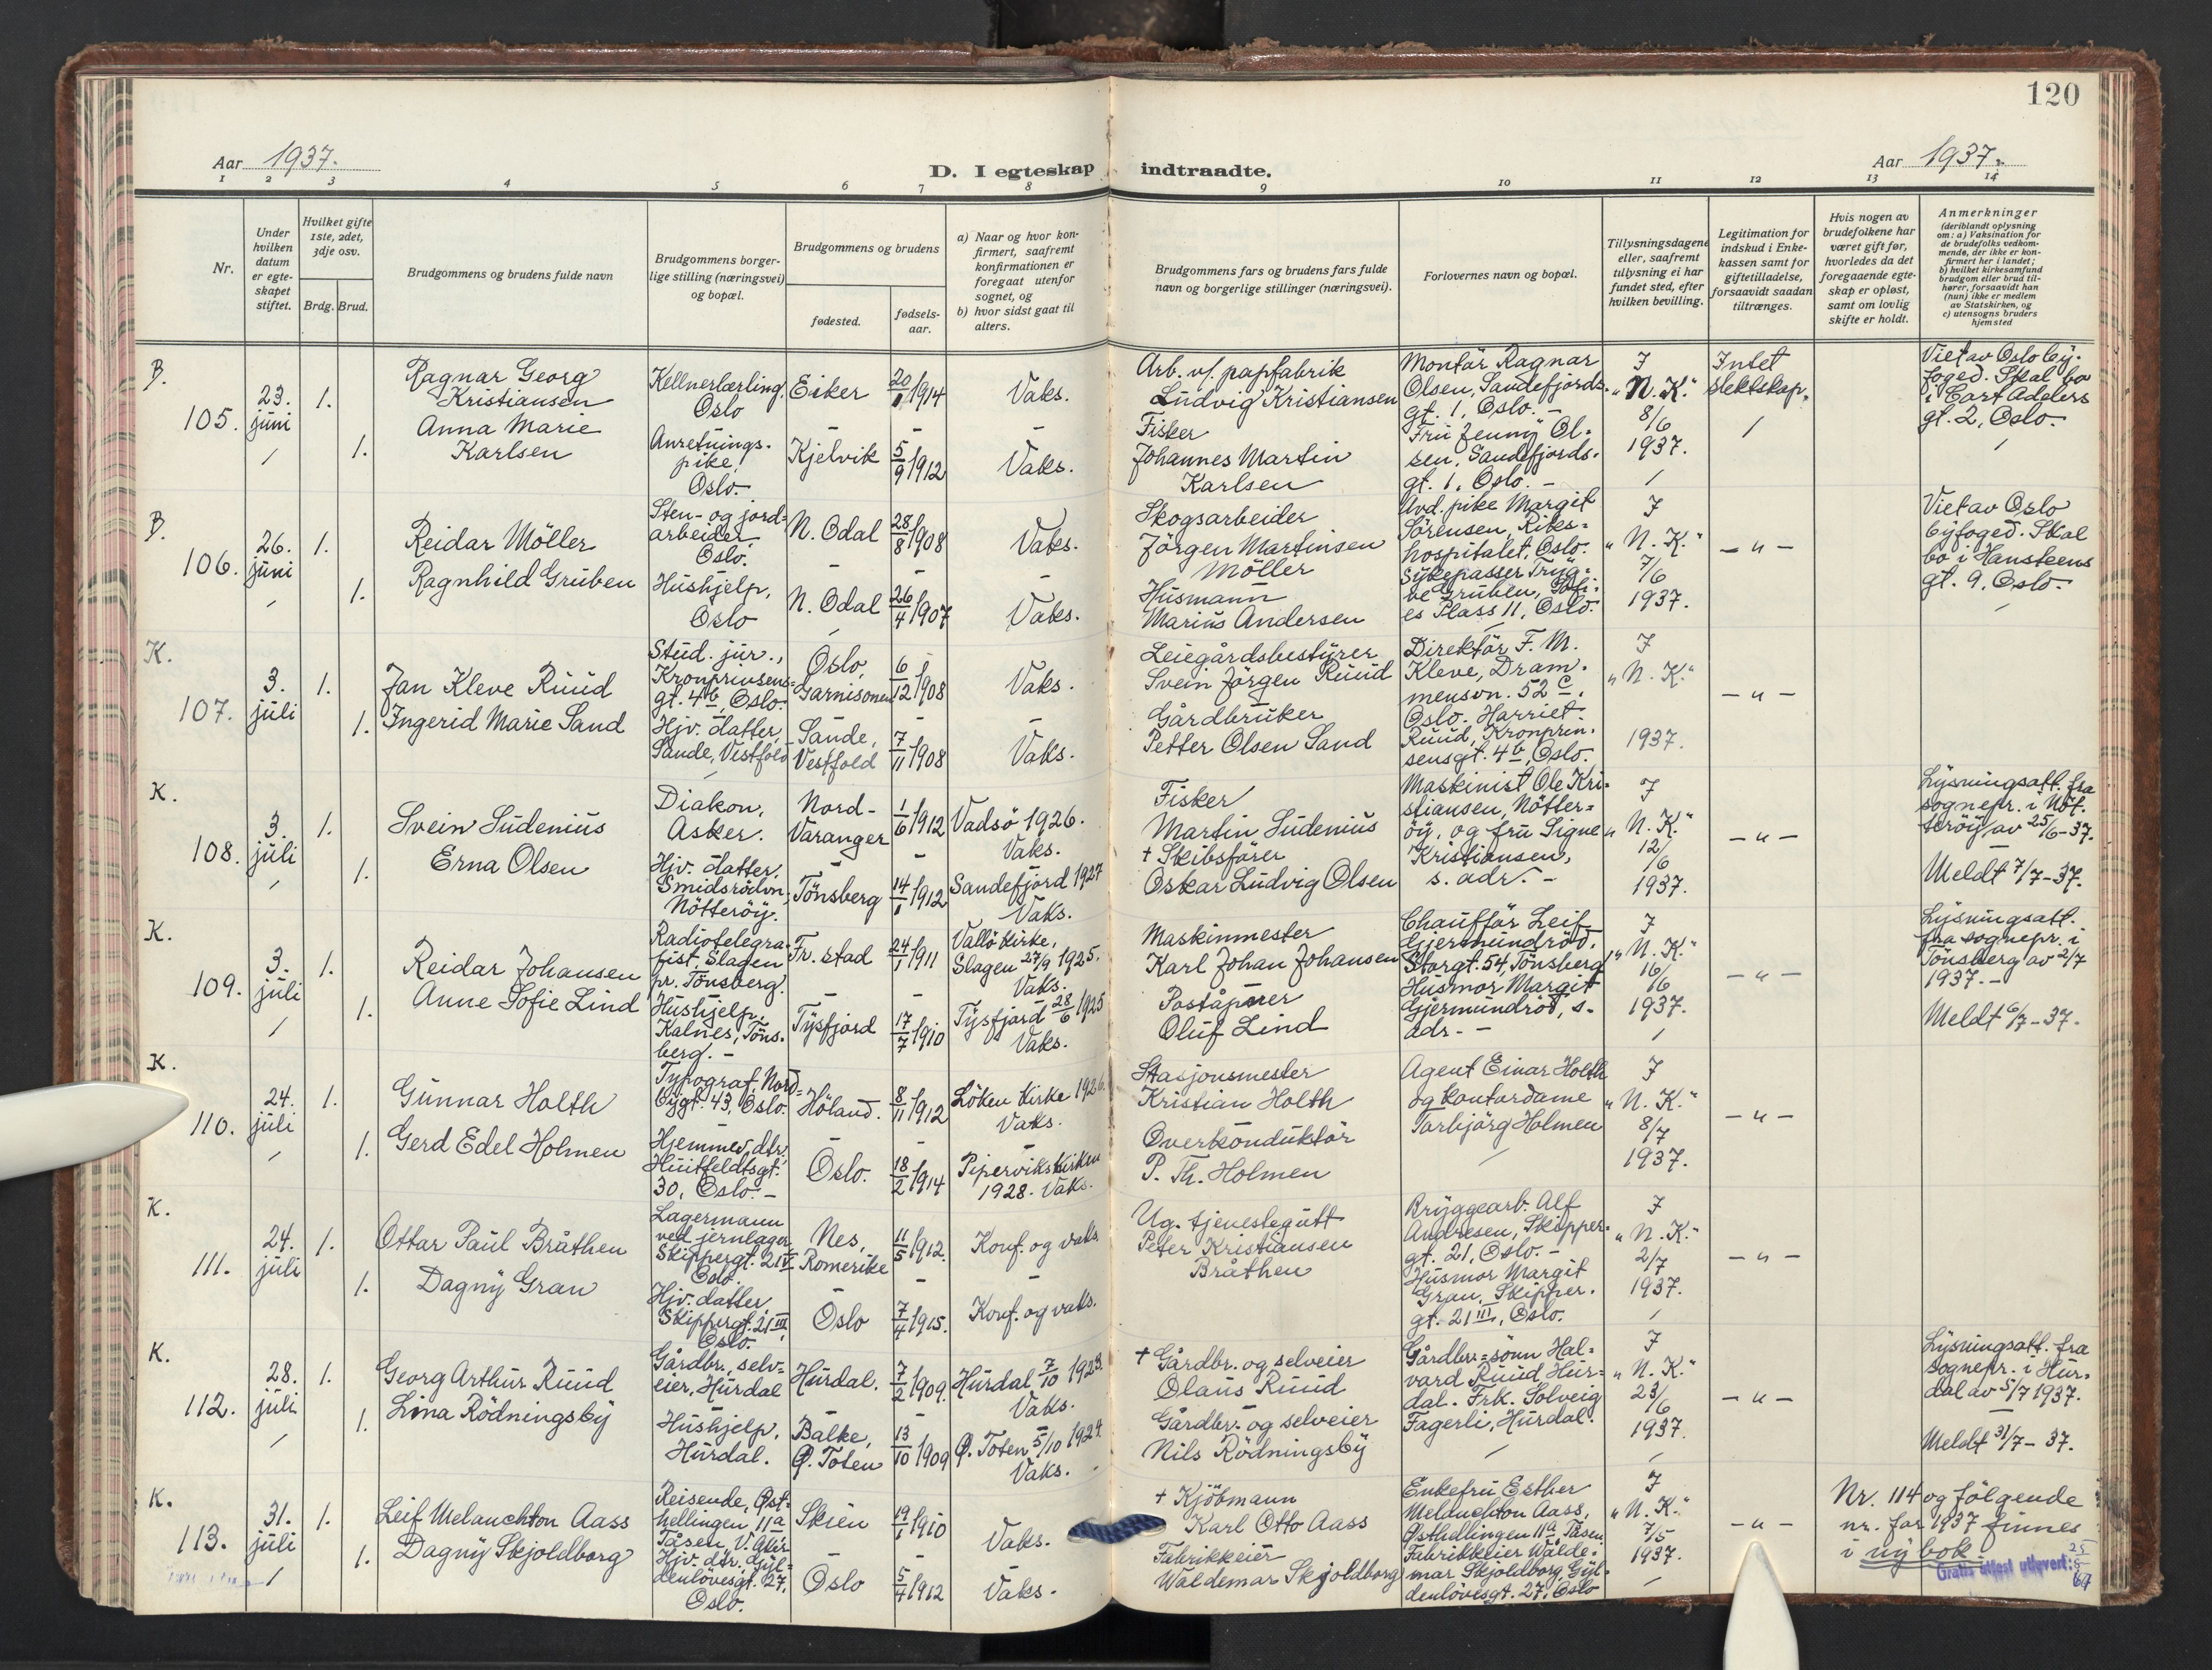 120
Aar 1937.
D. I egteskap indtraadte.
Aar 1937.
1 2 3 4 5 6 7 8 9 10 11 12 13 14
Nr.
Under hvilken datum er egteskapet stiftet.
Hvilket gifte 1ste, 2det, 3dje osv.
Brdg. Brud.
Brudgommens og brudens fulde navn
Brudgommens borgerlige stilling (næringsvei) og bopæl.
Brudgommens og brudens
fødested.
fødselsaar.
a) Naar og hvor konfirmert, saafremt konfirmationen er foregaat utenfor sognet, og
b) hvor sidst gaat til alters.
Brudgommens fars og brudens fars fulde navn og borgerlige stillinger (næringsvei).
Forlovernes navn og bopæl.
Tillysningsdagene eller, saafremt tillysning ei har fundet sted, efter hvilken bevilling.
Legitimation for indskud i Enkekassen samt for giftetilladelse, forsaavidt saadan tiltrænges.
Hvis nogen av brudefolkene har været gift før, hvorledes da det foregaaende egteskap er opløst, samt om lovlig skifte er holdt.
Anmerkninger
(deriblandt oplysning om: a) Vaksination for de brudefolks vedkommende, der ikke er konfirmert her i landet;
b) hvilket kirkesamfund brudgom eller brud tilhører, forsaavidt han (hun) ikke er medlem av Statskirken, og
c) utensogns bruders hjemsted
B.
105.
23. juni
1.
Ragnar Georg Kristiansen
Kellnerlærling, Oslo
Eiker
1914
Vaks.
Arb. v/. papfabrik
Ludvig Kristiansen
Montör Ragnar Olsen, Sandefjordsgt. 1, Oslo. -
I "N. K." 8/6 1937.
Intet slektskap.
Viet av Oslo byfoged. Skal bo i Cort Adelers gt. 2, Oslo.
1.
Anna Marie Karlsen
Anretningspike, Oslo.
Kjelvik
5/9 1912
Vaks.
Fisker
Johannes Martin Karlsen
Fru Jenny Olsen, Sandefjordsgt. 1, Oslo. -
B.
106.
26. juni
1.
Reidar Möller
Sten- og jordarbeider, Oslo.
N. Odal
28/8 1908
Vaks.
Skogsarbeider
Jörgen Martinsen Möller
Avd. pike Margit Sörensen, Rikshospitalet, Oslo.
I "N. K." 7/6 1937.
- " -
Viet av Oslo byfoged. Skal bo i Hansteens gt. 9, Oslo.
1.
Ragnhild Gruben
Hushjelp, Oslo
N. Odal
26/4 1907
Vaks.
Husmann
Marius Andersen
Plass 11, Oslo.
K.
107.
3. juli
1.
Jan Kleve Ruud
Stud. jur., Kronprinsensgt. 4b, Oslo.
Oslo, Garnisonen
6/12 1908
Vaks.
Leiegårdsbestyrer
Svein Jörgen Ruud
Direktör F. M. Kleve, Drammensvn. 52 c, Oslo.
I "N. K." 1937.
- " -
1.
Ingerid Marie Sand
Hjv. datter, Sande, Vestfold
Sande, Vestfold
7/11 1908
Vaks.
Gårdbruker
Petter Olsen Sand
Harriet Ruud, Kronprinsensgt. 4b, Oslo.
K.
108.
3. juli
1.
Svein Sudenius
Diakon, Asker.
Nord-Varanger
1/6 1912
Vadsö 1926. Vaks.
Fisker
Martin Sudenius
Maskinist Ole Kristiansen, Nötteröy, og fru Signe Kristiansen, s. adr. -
I "N. K." 12/6 1937.
- " -
Lysningsatt. fra sognepr. i Nötteröy av 25/6-37.
Meldt 7/7-37.
1.
Erna Olsen
Hjv. datter, Smidsrödvn, Nötteröy.
Tönsberg
1912
Sandefjord 1927 Vaks.
+ Skibsförer
Oskar Ludvig Olsen
K.
109.
3. juli
1.
Reidar Johansen
Radiotelegrafist, Slagen pr. Tönsberg.
Fr. stad
24/1 1911
Vallö kirke, Slagen 27/9 1925. Vaks.
Maskinmester
Karl Johan Johansen
Chaufför Leif Gjermundröd, Storgt. 54, Tönsberg
I "N. K." 16/6 1937.
- " -
Lysningsatt. fra sognepr. i Tönsberg av 2/7 1937. -
Meldt 6/7-37.
1.
Anne Sofie Lind
Hushjelp, Kalnes, Tönsberg. -
Tysfjord
17/7 1910
Tysfjord 28/6 1925 Vaks.
Poståpner
Oluf Lind
Husmor Margit Gjermundröd, s. adr. -
K.
110.
24. juli
1.
Gunnar Holth
Typograf, Nordbygt. 43, Oslo.
Höland.
8/11 1912
Löken kirke 1926. Vaks.
Stasjonsmester
Kristian Holth
Agent Einar Holth og kontordame Torbjörg Holmen
I "N. K." 8/7 1937.
- " -
1.
Gerd Edel Holmen
Hjemmev. dtr, Huitfeldtsgt. 30, Oslo. -
Oslo.
18/2 1914
Piperviks kirken 1928. Vaks.
Overkonduktör
P. Th. Holmen
K.
111.
24. juli
1.
Ottar Paul Bråthen
Lagermann ved jernlager, Skippergt. 21 IV Oslo.
Nes, Romerike
11/5 1912.
Konf. og vaks
Ug. tjenestegutt
Peter Kristiansen Bråthen
Bryggearb. Alf Andresen, Skippergt. 21, Oslo. -
I "N. K." 2/7 1937.
- " -
1.
Dagny Gran
Hjv. datter, Skippergt. 21 III, Oslo.
Oslo
7/4 1915.
Konf. og vaks.
Husmor Margit Gran, Skippergt. 21 III, Oslo.
K.
112.
28. juli
1.
Georg Arthur Ruud
Gårdbr., selveier, Hurdal
Hurdal.
7/2 1909.
Hurdal 7/10 1923. Vaks.
+ Gårdbr. og selveier
Olaus Ruud
Gårdbr=sönn Halvard Ruud Hurdal. Frk. Solveig Fagerli, Hurdal.
I "N. K." 23/6 1937.
- " -
Lysningsatt. fra sognepr. i Hurdal av 5/7 1937.
Meldt 31/7-37.
1.
Lina Rödningsby
Hushjelp, Hurdal.
Balke, Ø. Toten
13/10 1909
Ø. Toten 5/10 1924. Vaks.
Gårdbr. og selveier
Nils Rödningsby
K.
113.
31. juli
1.
Leif Melanchton Aass
Reisende, Østhellingen 11a Tåsen, V. Aker
Skien
19/1 1910
Vaks.
+ Kjöbmann
Karl Otto Aass
Enkefru Esther Melanchton Aass, Østhellingen 11a Tåsen
I "N. K." 7/5 1937.
- " -
Nr. 114 og fölgende nr. for 1937 finnes i ny bok.
1.
Dagny Skjoldborg
Hjv. dtr. Gyldenlövesgt. 27, Oslo.
Oslo
5/4 1912
Vaks.
Fabrikkeier
Waldemar Skjoldborg
Fabrikkeier Waldemar Skjoldborg, Gyldenlövesgt. 27, Oslo
Gratis attest utlevert: